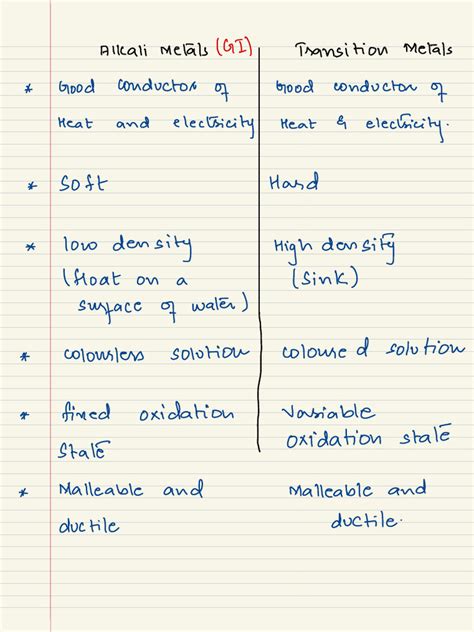 Alkali Metals (GI) Transition Metals
* Good conductor of Good conductor of
Heat and electricity Heat & electricity.
* Soft Hard
* low density High density
(float on a (Sink)
surface of water)
* colourless solution coloured solution
* fixed oxidation Variable
State oxidation state
* Malleable and Malleable and
ductile ductile.